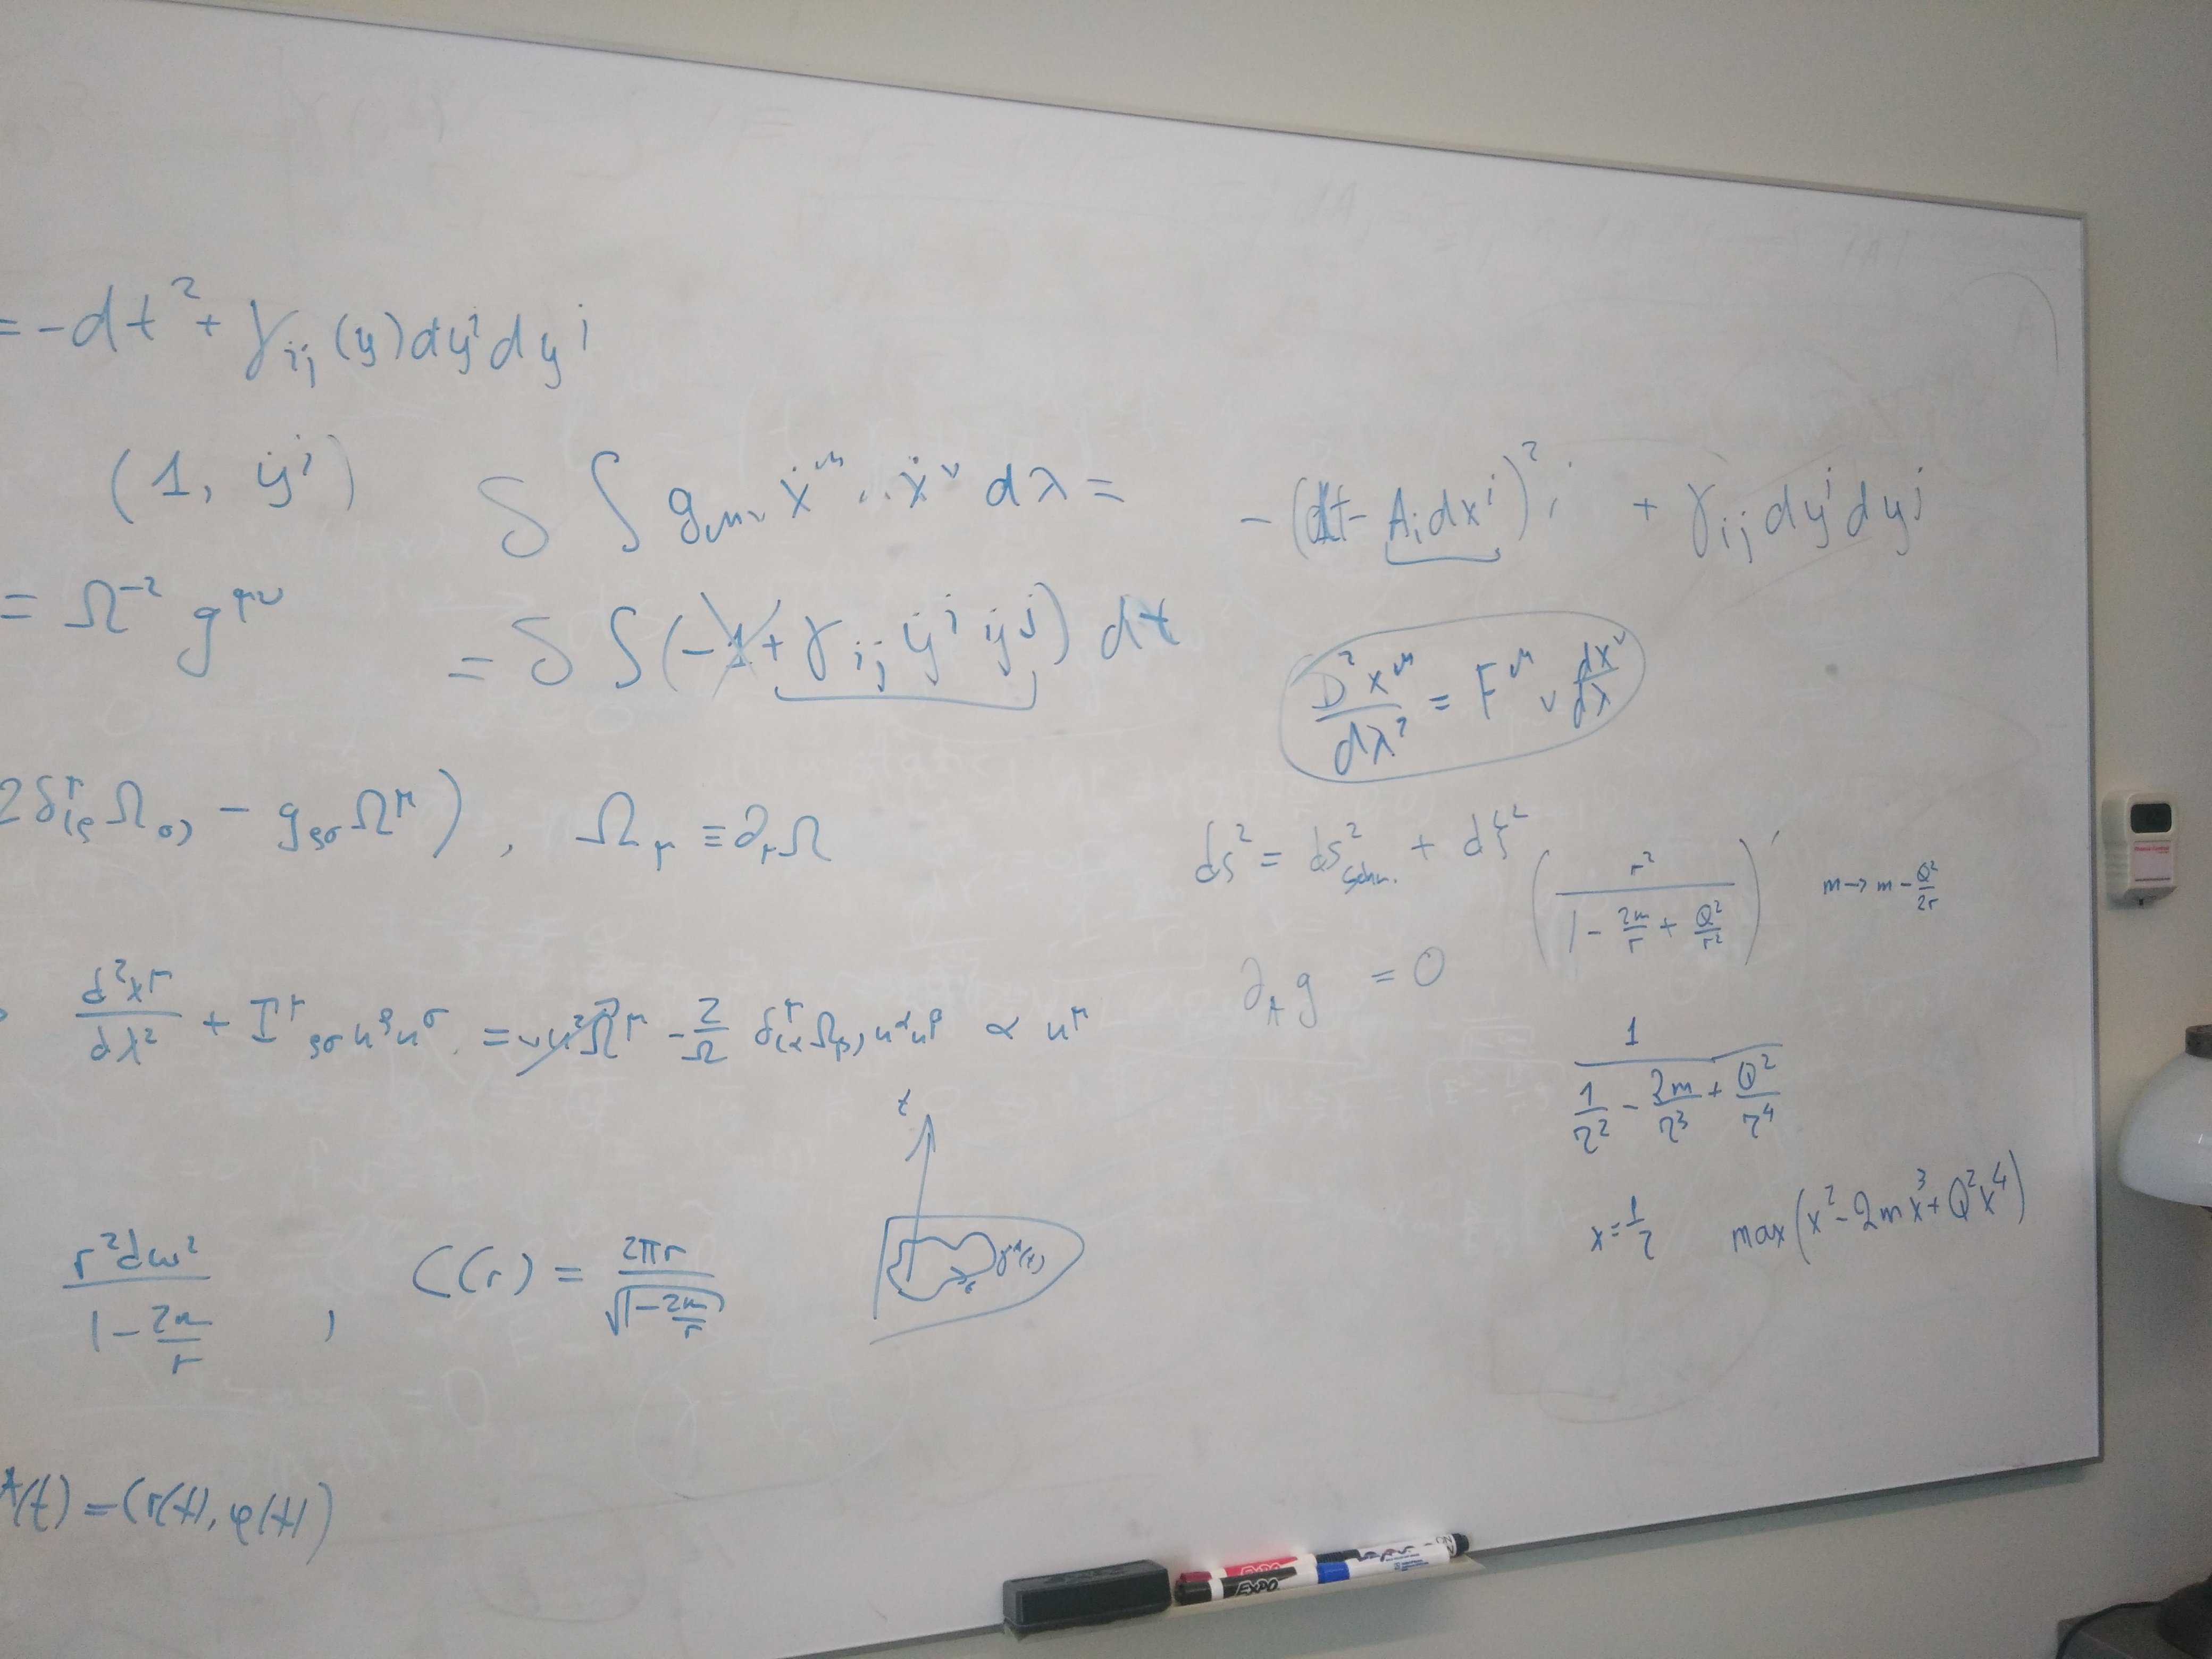 = -dt² + γ_ij (y) dy^i dy^j
(1, ẏ^i)
δ ∫ g_μν ẋ^μ ẋ^ν dλ =
-(dt - A_i dx^i)² + γ_ij dy^i dy^j
= Ω⁻² g^μν
= δ ∫ (-1 + γ_ij ẏ^i ẏ^j) dt
D²x^μ/dλ² = F^μ_ν dx^ν/dλ
2δ^μ_(ρ Ω_σ) - g_ρσ Ω^μ ) , Ω_μ ≡ ∂_μ Ω
ds² = ds²_Schw. + dξ²
( r² / (1 - 2m/r + Q²/r²) )'
m → m - Q²/2r
∂_A g = 0
d²x^μ/dλ² + Γ^μ_ρσ u^ρ u^σ = u²Ω^μ - 2/Ω δ^μ_(α Ω_β) u^α u^β ∝ u^μ
1 / (1/r² - 2m/r³ + Q²/r⁴)
t
γ^A(t)
x = 1/r max(x² - 2mx³ + Q²x⁴)
r²dω² / (1 - 2m/r) , C(r) = 2πr / √(1 - 2m/r)
A(t) = (r(t), φ(t))
EXPO
EXPO